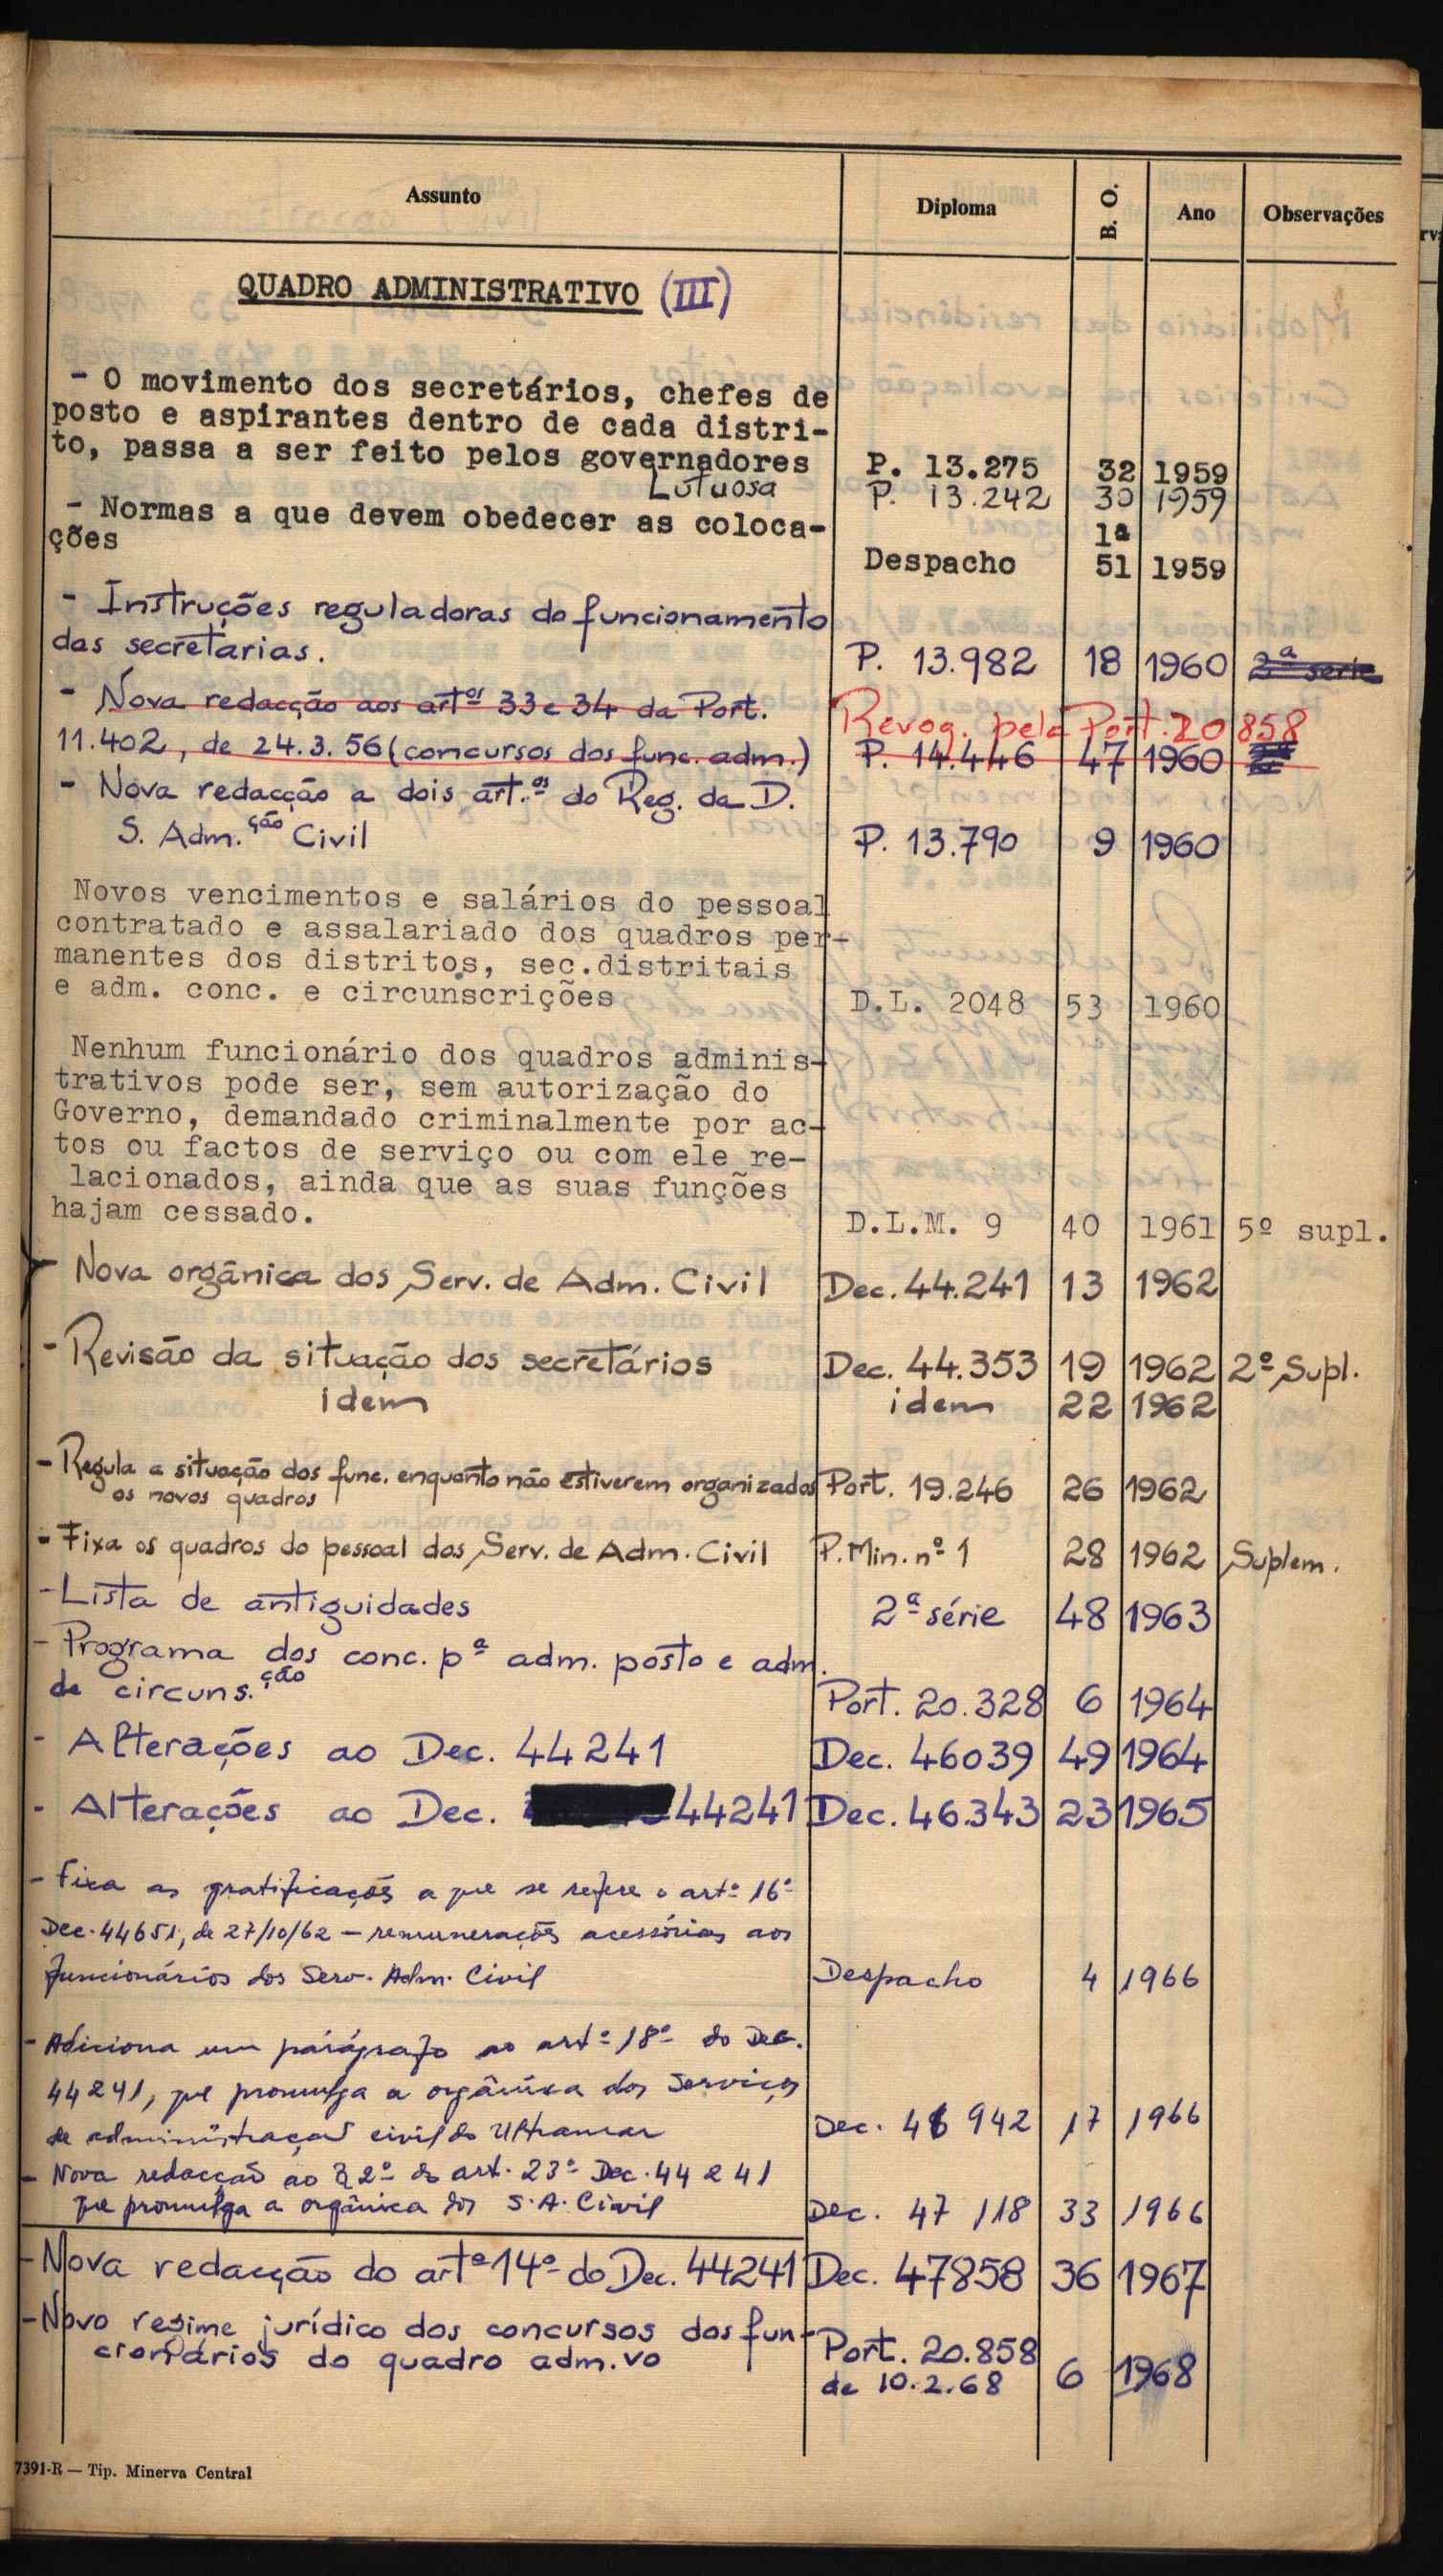 Assunto Diploma B. O. Ano Observações
QUADRO ADMINISTRATIVO (III)
- O movimento dos secretários, chefes de
posto e aspirantes dentro de cada distri-
to, passa a ser feito pelos governadores P. 13.275 32 1959
Lutuosa P. 13.242 30 1959
- Normas a que devem obedecer as coloca- 1ª
ções Despacho 51 1959
- Instruções reguladoras do funcionamento
das secretarias. P. 13.982 18 1960 2ª série
- Nova redacção aos artºs 33 e 34 da Port. Revog. pela Port. 20 858
11.402, de 24.3.56 (concursos dos func. adm.) P. 14.446 47 1960
- Nova redacção a dois art.os do Reg. da D.
S. Adm.ção Civil P. 13.790 9 1960
Novos vencimentos e salários do pessoal
contratado e assalariado dos quadros per-
manentes dos distritos, sec.distritais
e adm. conc. e circunscrições D.L. 2048 53 1960
Nenhum funcionário dos quadros adminis-
trativos pode ser, sem autorização do
Governo, demandado criminalmente por ac-
tos ou factos de serviço ou com ele re-
lacionados, ainda que as suas funções
hajam cessado. D.L.M. 9 40 1961 5º supl.
- Nova orgânica dos Serv. de Adm. Civil Dec. 44.241 13 1962
- Revisão da situação dos secretários Dec. 44.353 19 1962 2º Supl.
idem idem 22 1962
- Regula a situação dos func. enquanto não estiverem organizados Port. 19.246 26 1962
os novos quadros
- Fixa os quadros do pessoal dos Serv. de Adm. Civil P. Min. nº 1 28 1962 Suplem.
- Lista de antiguidades 2ª série 48 1963
- Programa dos conc. pª adm. posto e adm.
de circuns.ção Port. 20.328 6 1964
- Alterações ao Dec. 44241 Dec. 46039 49 1964
- Alterações ao Dec. 44241 Dec. 46.343 23 1965
- Fixa as gratificações a que se refere o artº 16º
Dec. 44651, de 27/10/62 - remunerações acessórias aos
funcionários dos Serv. Adm. Civil Despacho 4 1966
- Adiciona um parágrafo ao artº 18º do Dec.
44241, que promulga a orgânica dos Serviços
de administração civil do Ultramar Dec. 46 942 17 1966
- Nova redacção ao § 2º do art. 23º Dec. 44 241
que promulga a orgânica dos S. A. Civil Dec. 47 118 33 1966
- Nova redacção do artº 14º do Dec. 44241 Dec. 47858 36 1967
- Novo regime jurídico dos concursos dos fun- Port. 20.858
cionários do quadro adm.vo de 10.2.68 6 1968
7391-R — Tip. Minerva Central